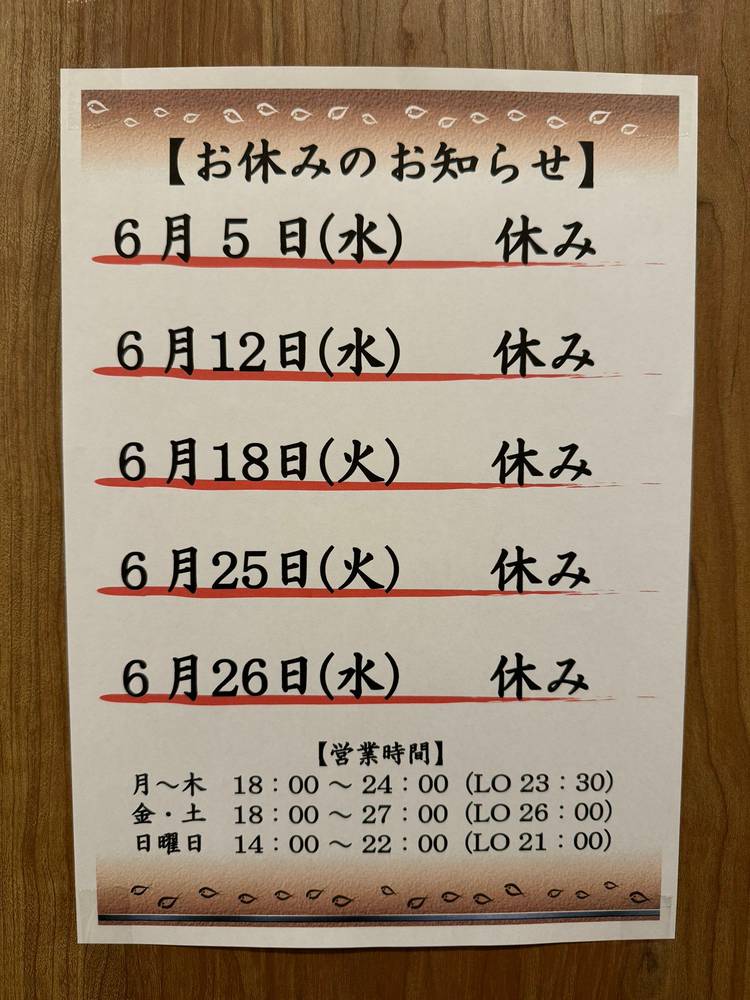 【お休みのお知らせ】
6月5日(水) 休み
6月12日(水) 休み
6月18日(火) 休み
6月25日(火) 休み
6月26日(水) 休み
【営業時間】
月〜木 18：00 〜 24：00 (LO 23：30)
金・土 18：00 〜 27：00 (LO 26：00)
日曜日 14：00 〜 22：00 (LO 21：00)